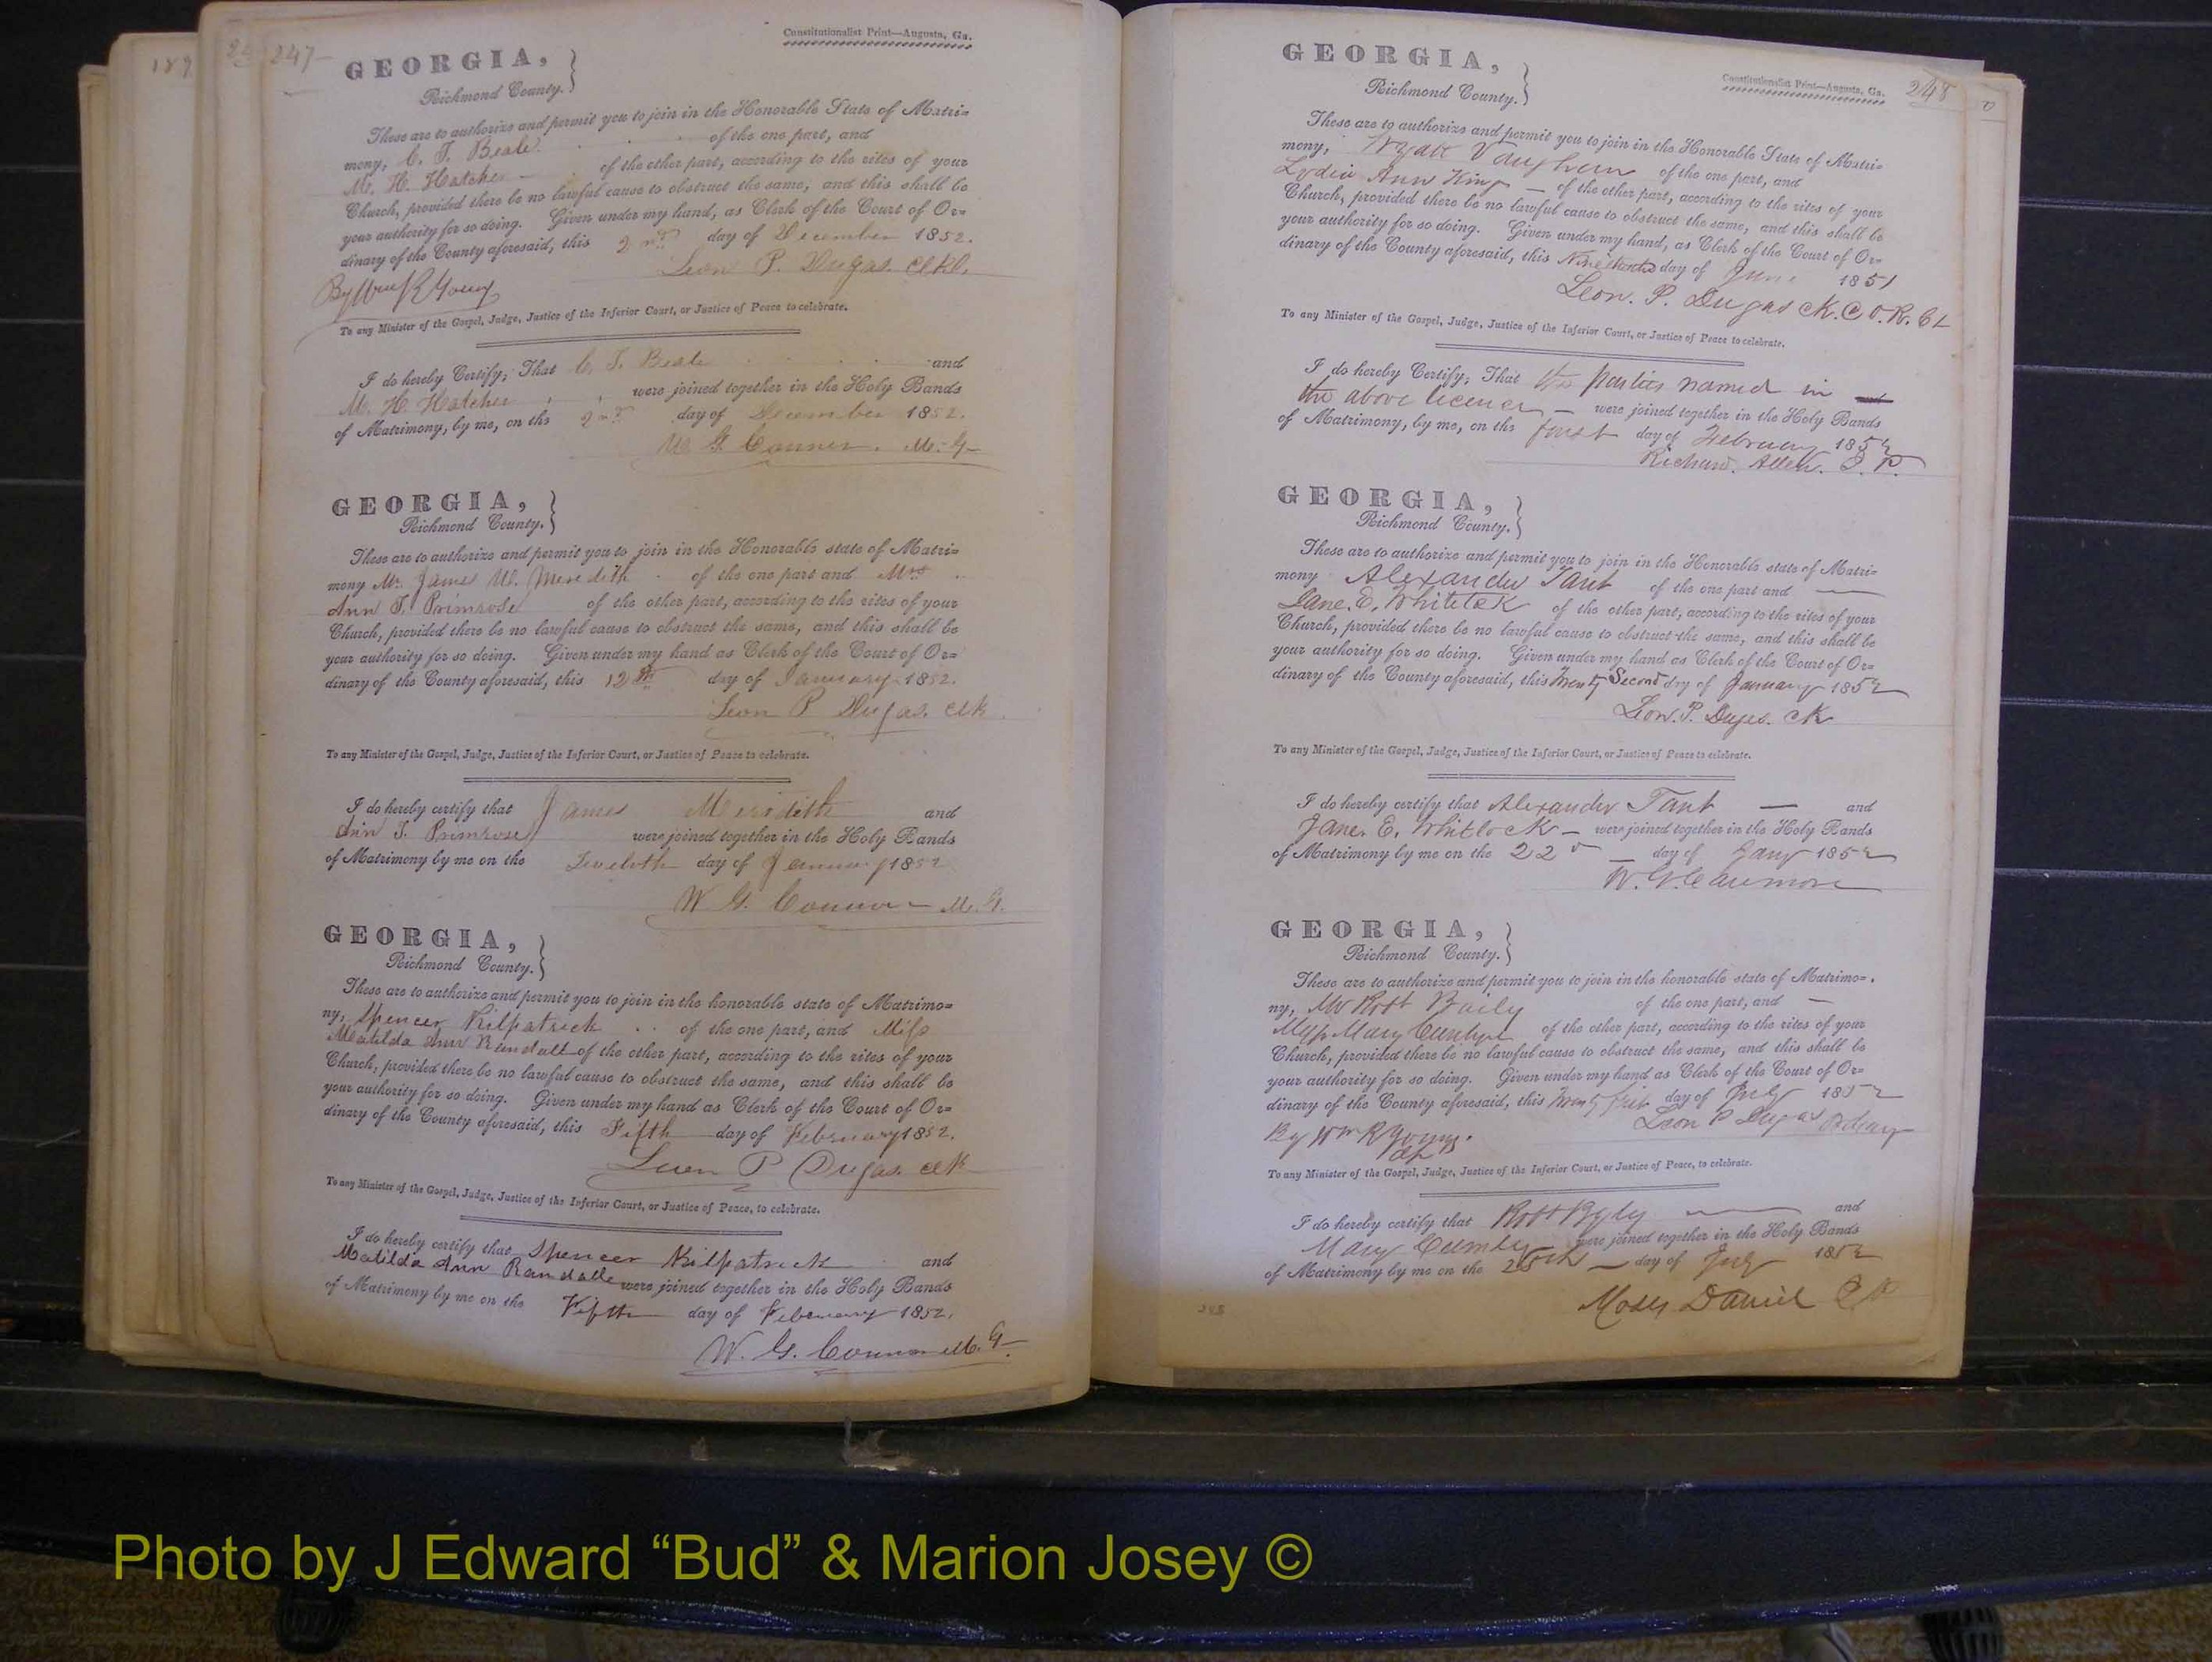 247
Constitutionalist Print—Augusta, Ga.
GEORGIA,
Richmond County.
These are to authorize and permit you to join in the Honorable State of Matri=
mony, C. T. Beale of the one part, and
M. H. Hatcher of the other part, according to the rites of your
Church, provided there be no lawful cause to obstruct the same, and this shall be
your authority for so doing. Given under my hand, as Clerk of the Court of Or=
dinary of the County aforesaid, this 2nd day of December 1852.
Leon P. Dugas.
By Wm R Young
To any Minister of the Gospel, Judge, Justice of the Inferior Court, or Justice of Peace to celebrate.
I do hereby Certify; That C. T. Beale and
M. H. Hatcher were joined together in the Holy Bands
of Matrimony, by me, on the 2nd day of December 1852.
W G Conner. M. G
GEORGIA,
Richmond County.
These are to authorize and permit you to join in the Honorable state of Matri=
mony Mr. James W. Meredith of the one part and Mrs
Ann T. Primrose of the other part, according to the rites of your
Church, provided there be no lawful cause to obstruct the same, and this shall be
your authority for so doing. Given under my hand as Clerk of the Court of Or=
dinary of the County aforesaid, this 12th day of January 1852.
Leon P Dugas. Clk
To any Minister of the Gospel, Judge, Justice of the Inferior Court, or Justice of Peace to celebrate.
I do hereby certify that James Meredith and
Ann T. Primrose were joined together in the Holy Bands
of Matrimony by me on the Twelvth day of January 1852
W. G. Connor M. G.
GEORGIA,
Richmond County.
These are to authorize and permit you to join in the honorable state of Matrimo=
ny, Spencer Kilpatrick of the one part, and Miss
Matilda Ann Randall of the other part, according to the rites of your
Church, provided there be no lawful cause to obstruct the same, and this shall be
your authority for so doing. Given under my hand as Clerk of the Court of Or=
dinary of the County aforesaid, this Fifth day of February 1852.
Leon P Dugas. Clk
To any Minister of the Gospel, Judge, Justice of the Inferior Court, or Justice of Peace, to celebrate.
I do hereby certify that Spencer Kilpatrick and
Matilda Ann Randalle were joined together in the Holy Bands
of Matrimony by me on the Fifth day of February 1852.
W. G. Connor M. G.
248
Constitutionalist Print—Augusta, Ga.
GEORGIA,
Richmond County.
These are to authorize and permit you to join in the Honorable State of Matri=
mony, Wyatt Vaughn of the one part, and
Lydia Ann King — of the other part, according to the rites of your
Church, provided there be no lawful cause to obstruct the same, and this shall be
your authority for so doing. Given under my hand, as Clerk of the Court of Or=
dinary of the County aforesaid, this day of June 1851
Leon. P. Dugas Ck. C O. R. Ct
To any Minister of the Gospel, Judge, Justice of the Inferior Court, or Justice of Peace to celebrate.
I do hereby Certify; That the parties named in
the above licence — were joined together in the Holy Bands
of Matrimony, by me, on the first day of February 1852
Richard. Allen. J. P.
GEORGIA,
Richmond County.
These are to authorize and permit you to join in the Honorable state of Matri=
mony Alexander Tant of the one part and —
Jane. E. of the other part, according to the rites of your
Church, provided there be no lawful cause to obstruct the same, and this shall be
your authority for so doing. Given under my hand as Clerk of the Court of Or=
dinary of the County aforesaid, this Twenty Second day of January 1852
Leon. P. Dugas. Ck
To any Minister of the Gospel, Judge, Justice of the Inferior Court, or Justice of Peace to celebrate.
I do hereby certify that Alexander Tant — and
Jane. E. Whitlock — were joined together in the Holy Bands
of Matrimony by me on the 22d — day of Jany 1852
GEORGIA,
Richmond County.
These are to authorize and permit you to join in the honorable state of Matrimo=
ny, Mr Robt Baily of the one part, and —
Miss Mary of the other part, according to the rites of your
Church, provided there be no lawful cause to obstruct the same, and this shall be
your authority for so doing. Given under my hand as Clerk of the Court of Or=
dinary of the County aforesaid, this Twenty first day of July 1852
Leon P Dugas Ordinary
By Wm R Young.
To any Minister of the Gospel, Judge, Justice of the Inferior Court, or Justice of Peace, to celebrate.
I do hereby certify that Robt and
Mary were joined together in the Holy Bands
of Matrimony by me on the — day of July 1852
Moses Daniel J P
Photo by J Edward “Bud” & Marion Josey ©